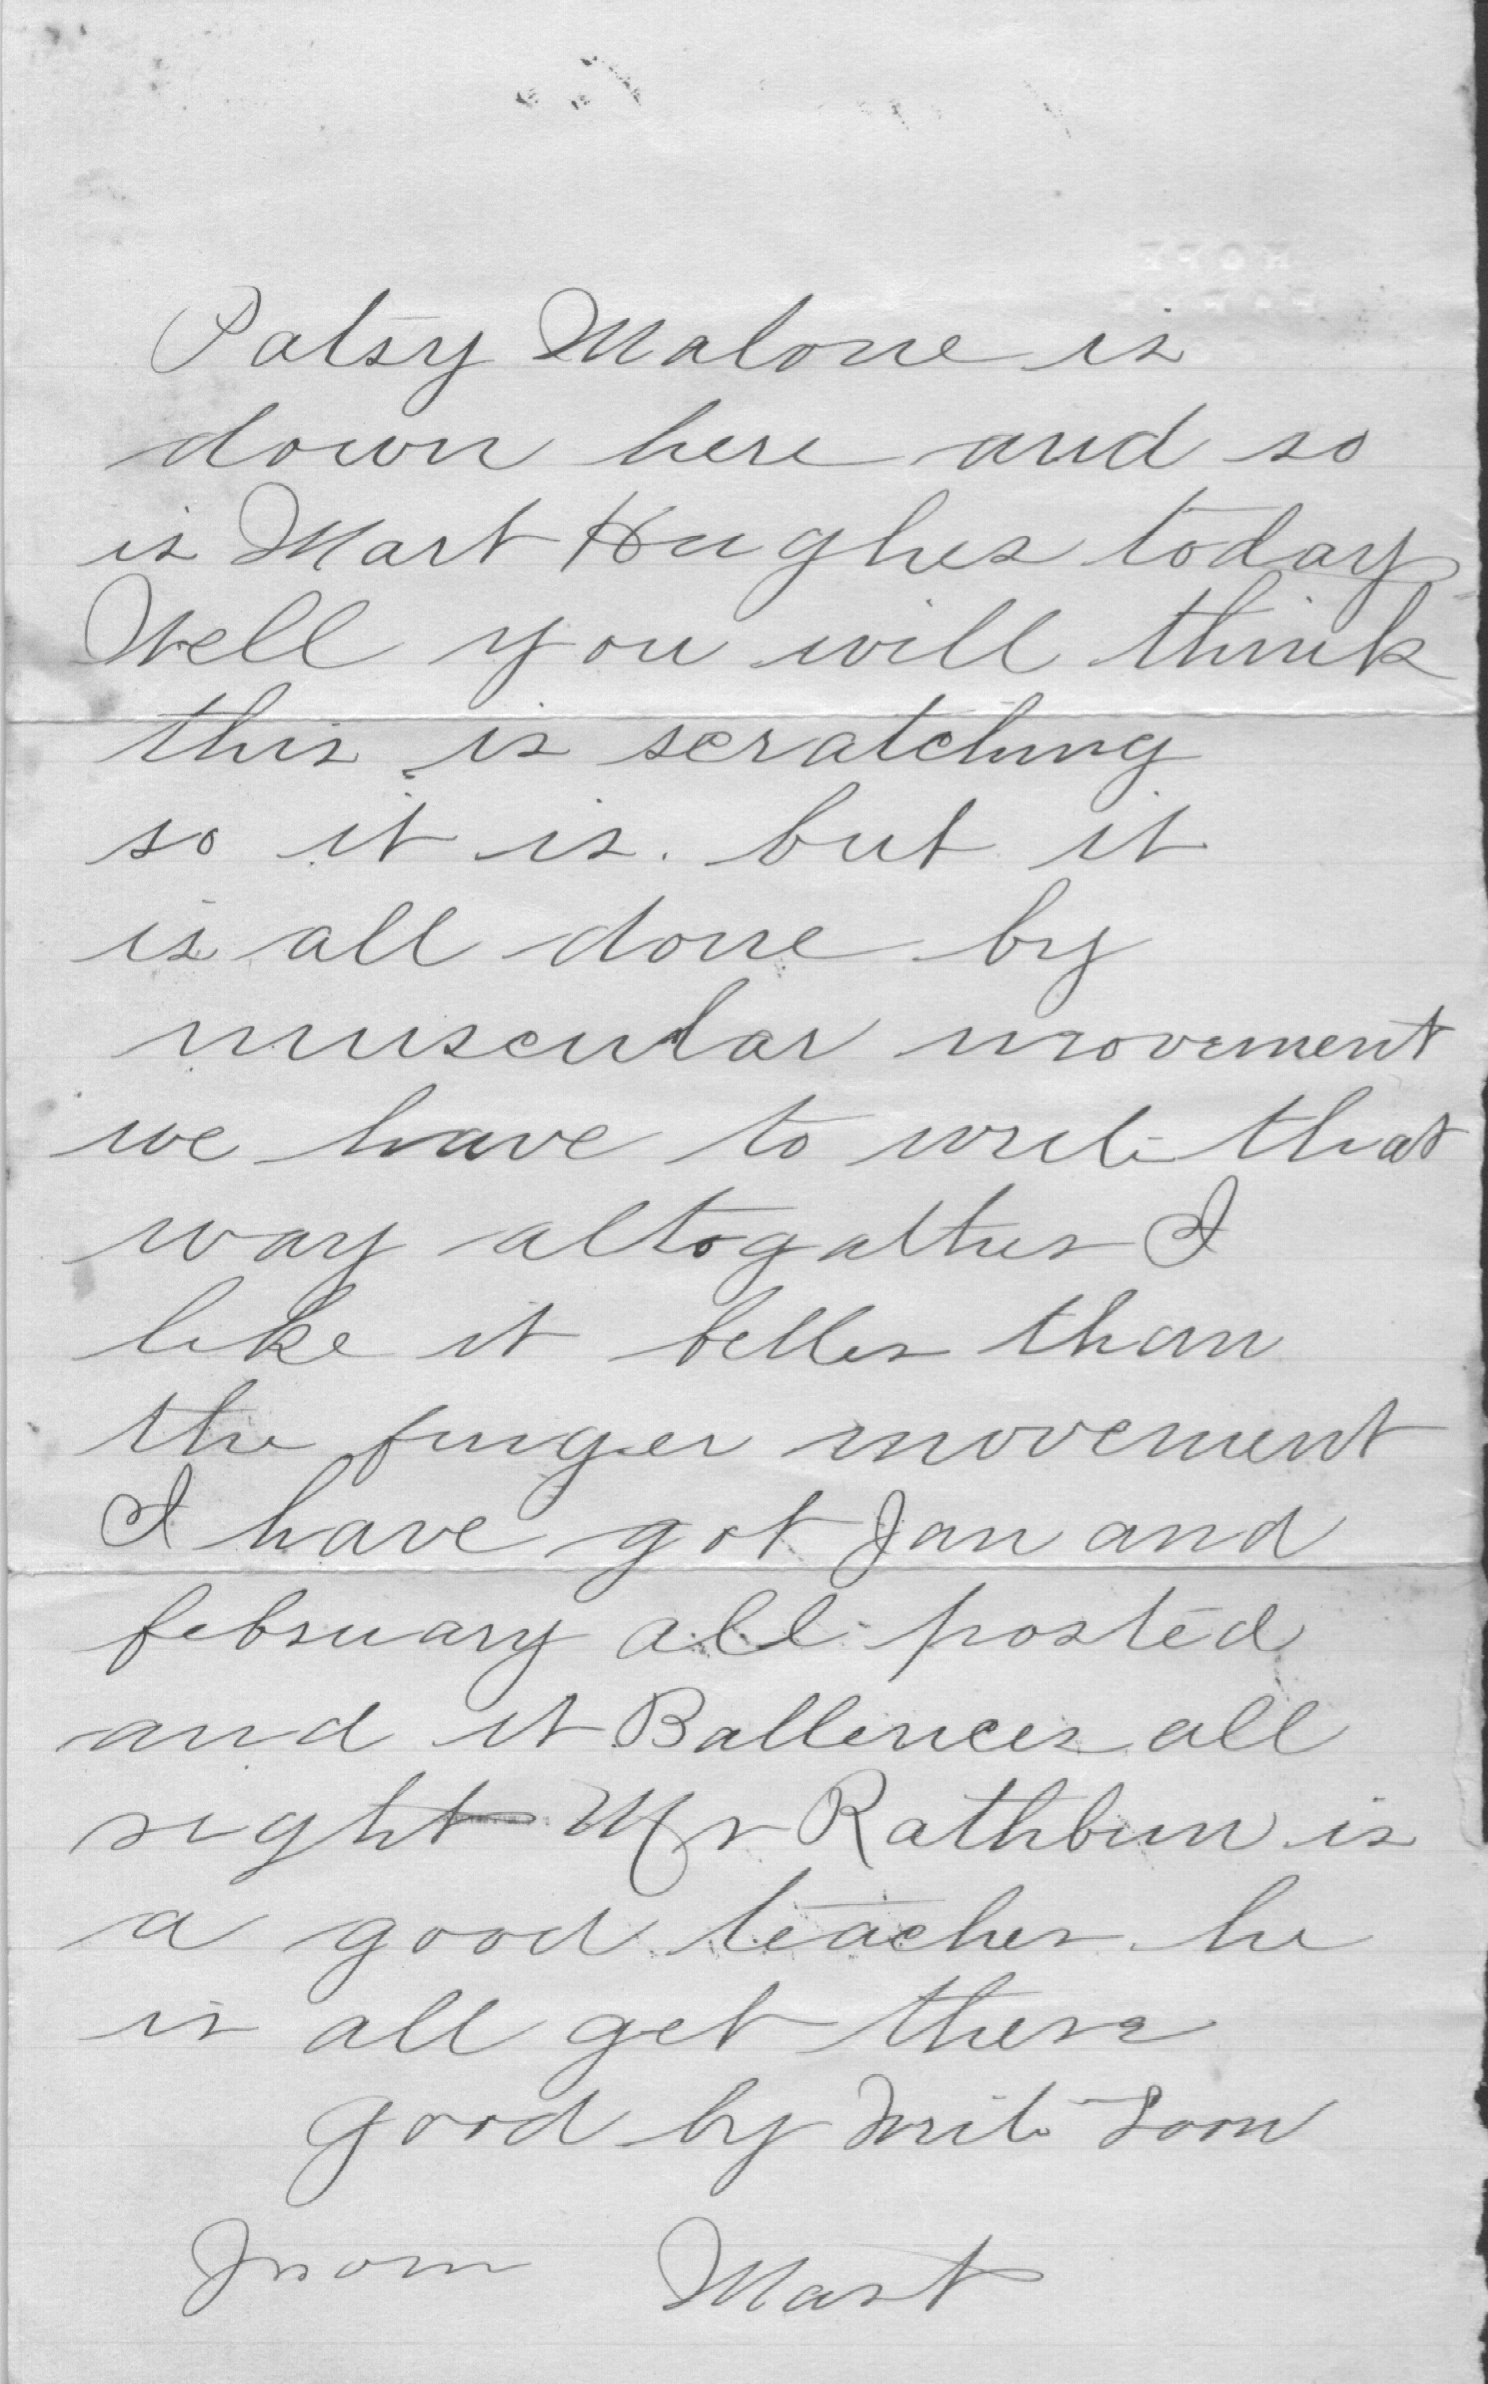 Patsy Malone is
down here and so
is Mart Hughes today
Well you will think
this is scratching
so it is. but it
is all done by
muscular movement
we have to write that
way altogather I
like it better than
the finger movement
I have got Jan and
february all posted
and it Ballences all
right Mr Rathbun is
a good teacher he
is all get there
good by Write Soon
From Mart